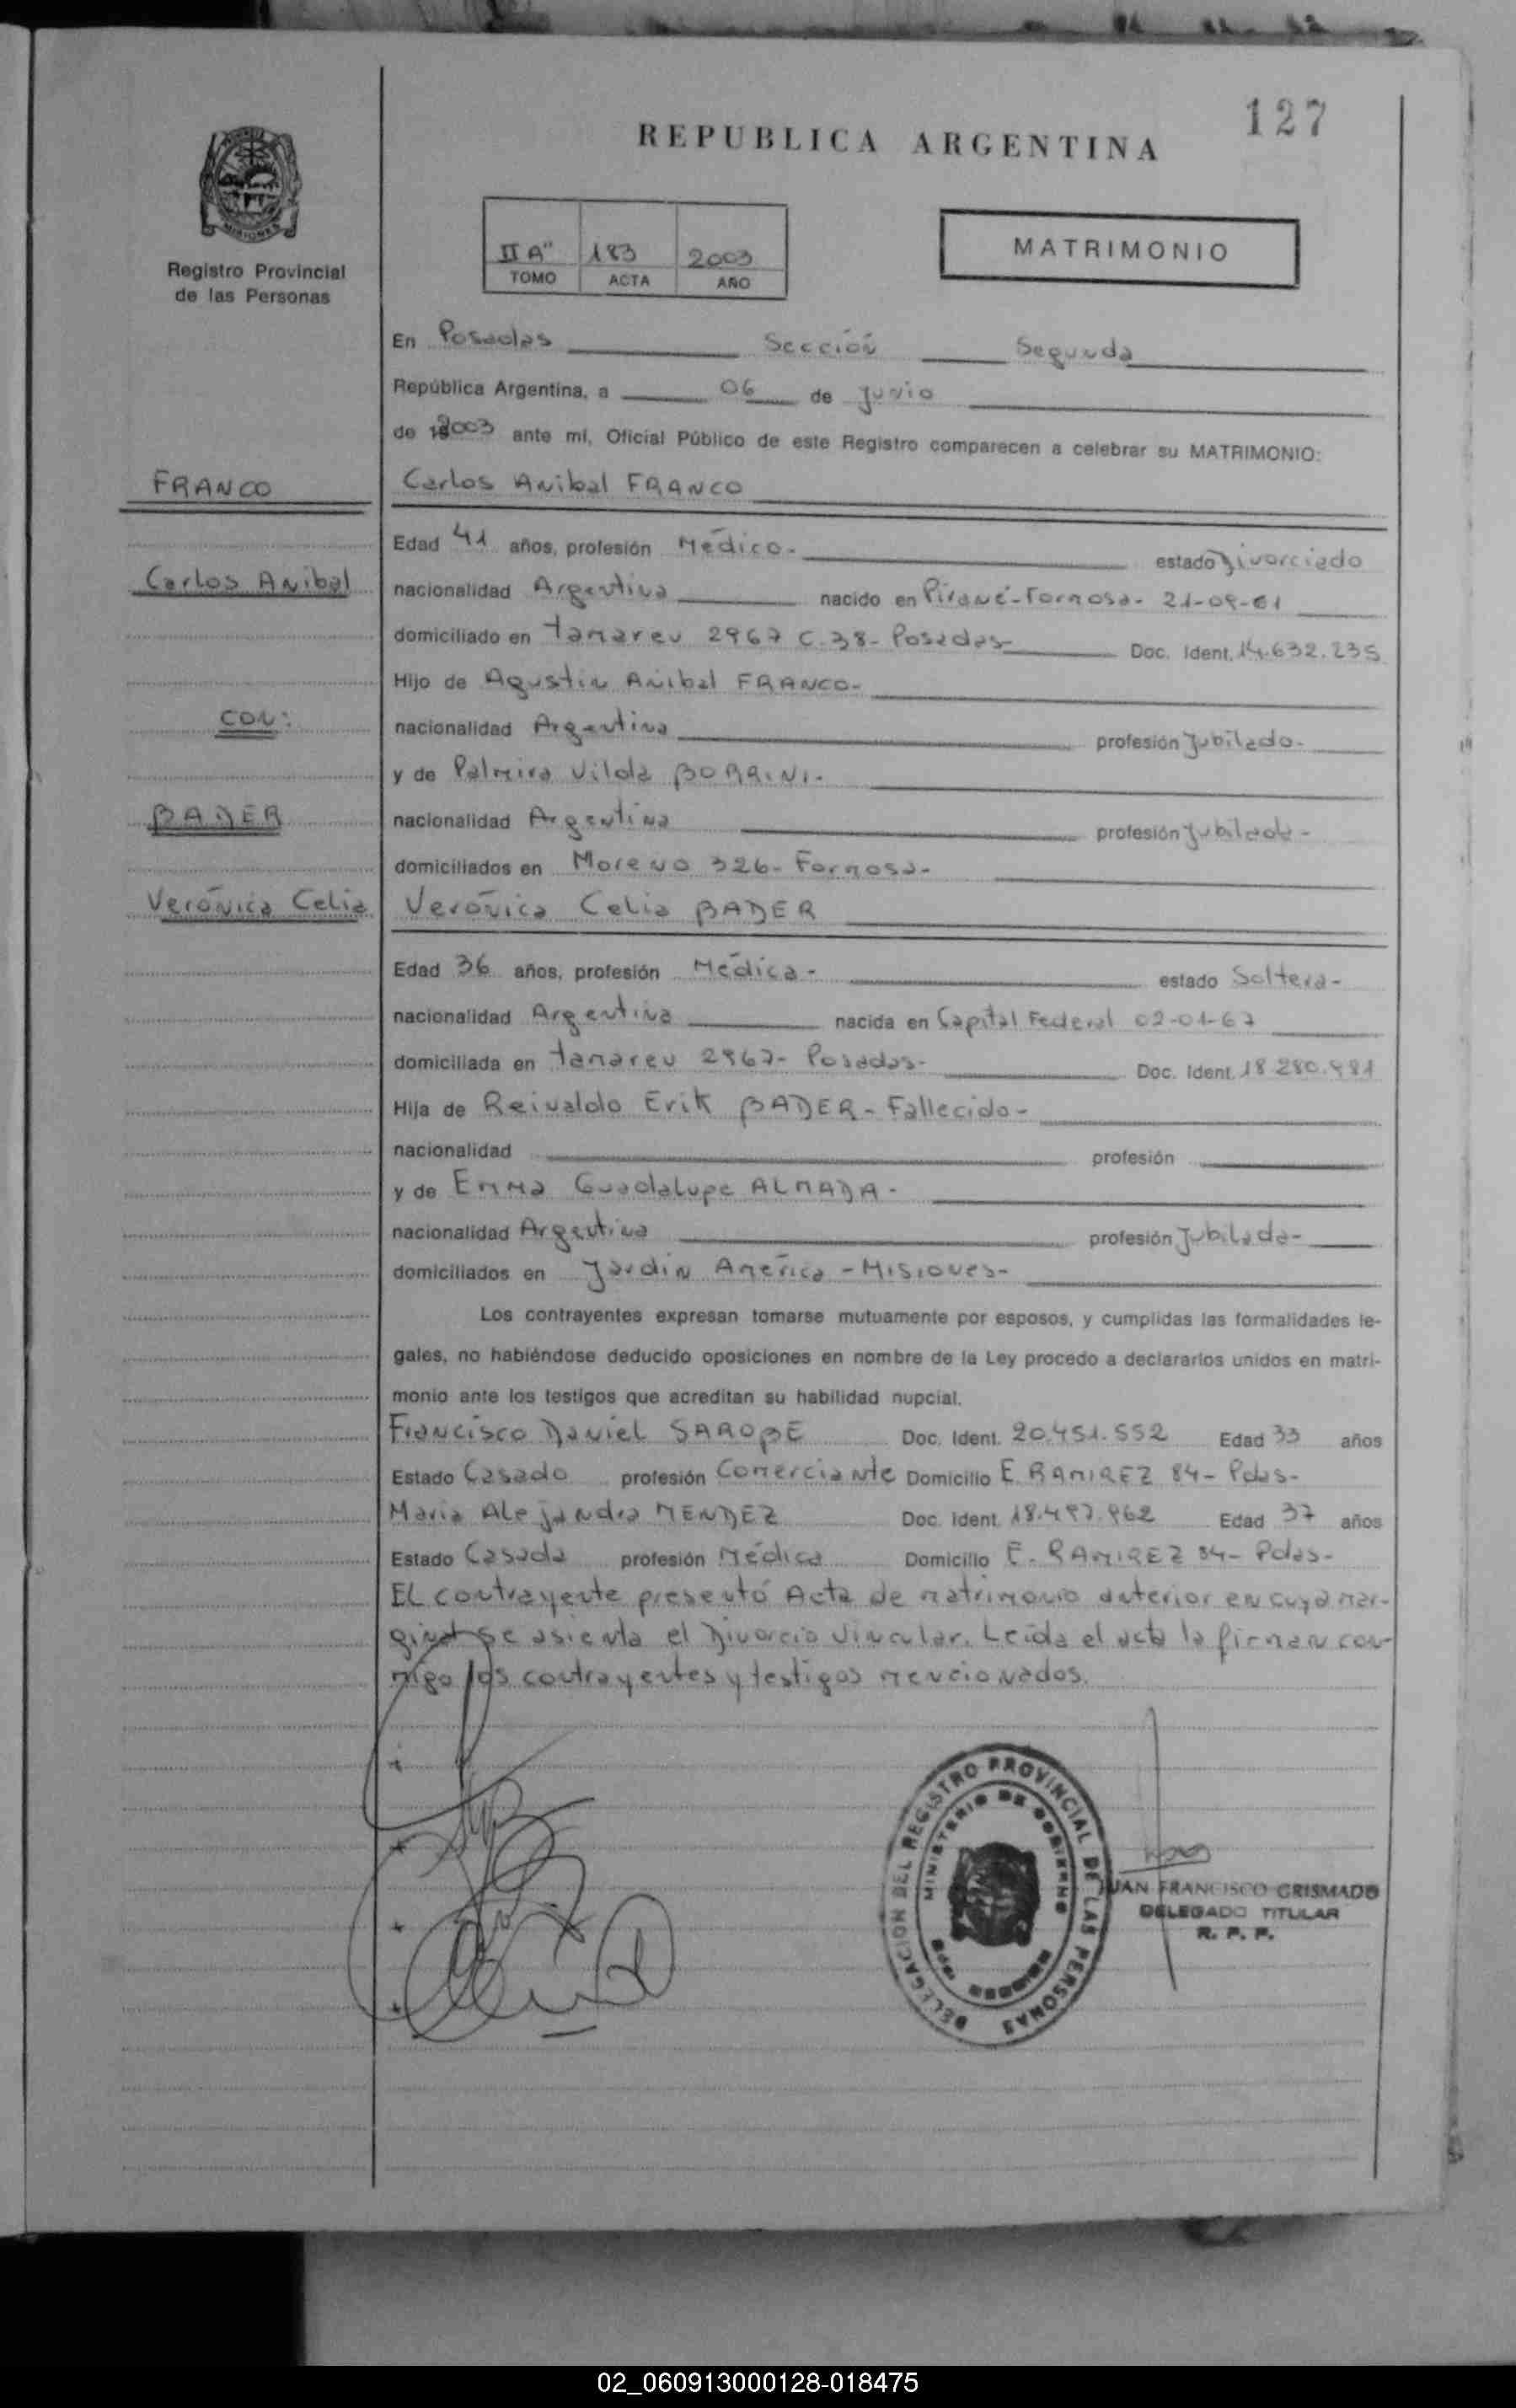 127
REPUBLICA ARGENTINA
MISIONES
Registro Provincial
de las Personas
II A" 183 2003
TOMO ACTA AÑO
MATRIMONIO
En Posadas Sección Segunda
República Argentina, a 06 de junio
de 2003 ante mí, Oficial Público de este Registro comparecen a celebrar su MATRIMONIO:
FRANCO
Carlos Anibal FRANCO
Edad 41 años, profesión Médico- estado Divorciado
Carlos Anibal
nacionalidad Argentina nacido en Pirané-Formosa- 21-09-61
domiciliado en Tamareu 2967 C.38- Posadas- Doc. Ident. 14.632.235
Hijo de Agustin Anibal FRANCO-
con:
nacionalidad Argentina profesión Jubilado-
y de Palmira Vilda BORRINI-
BADER
nacionalidad Argentina profesión Jubilada-
domiciliados en Moreno 326- Formosa-
Verónica Celia
Verónica Celia BADER
Edad 36 años, profesión Médica- estado Soltera-
nacionalidad Argentina nacida en Capital Federal 02-01-67
domiciliada en Tamareu 2967- Posadas- Doc. Ident.
Hija de Reinaldo Erik BADER- Fallecido-
nacionalidad profesión
y de Emma Guadalupe ALMADA-
nacionalidad Argentina profesión Jubilada-
domiciliados en Jardin América - Misiones-
Los contrayentes expresan tomarse mutuamente por esposos, y cumplidas las formalidades le-
gales, no habiéndose deducido oposiciones en nombre de la Ley procedo a declararlos unidos en matri-
monio ante los testigos que acreditan su habilidad nupcial.
Francisco Daniel SAROBE Doc. Ident. 20.451.552 Edad 33 años
Estado Casado profesión Comerciante Domicilio E. RAMIREZ 84- Pdas-
Maria Alejandra MENDEZ Doc. Ident. Edad 37 años
Estado Casada profesión Médica Domicilio E. RAMIREZ 84- Pdas-
El contrayente presentó Acta de matrimonio anterior en cuyo mar-
ginal se asienta el Divorcio Vincular. Leida el acta la firman con-
migo los contrayentes y testigos mencionados.
DELEGACION DEL REGISTRO PROVINCIAL DE LAS PERSONAS
MINISTERIO DE GOBIERNO
JUAN FRANCISCO GRISMADO
DELEGADO TITULAR
R. P. P.
02_060913000128-018475